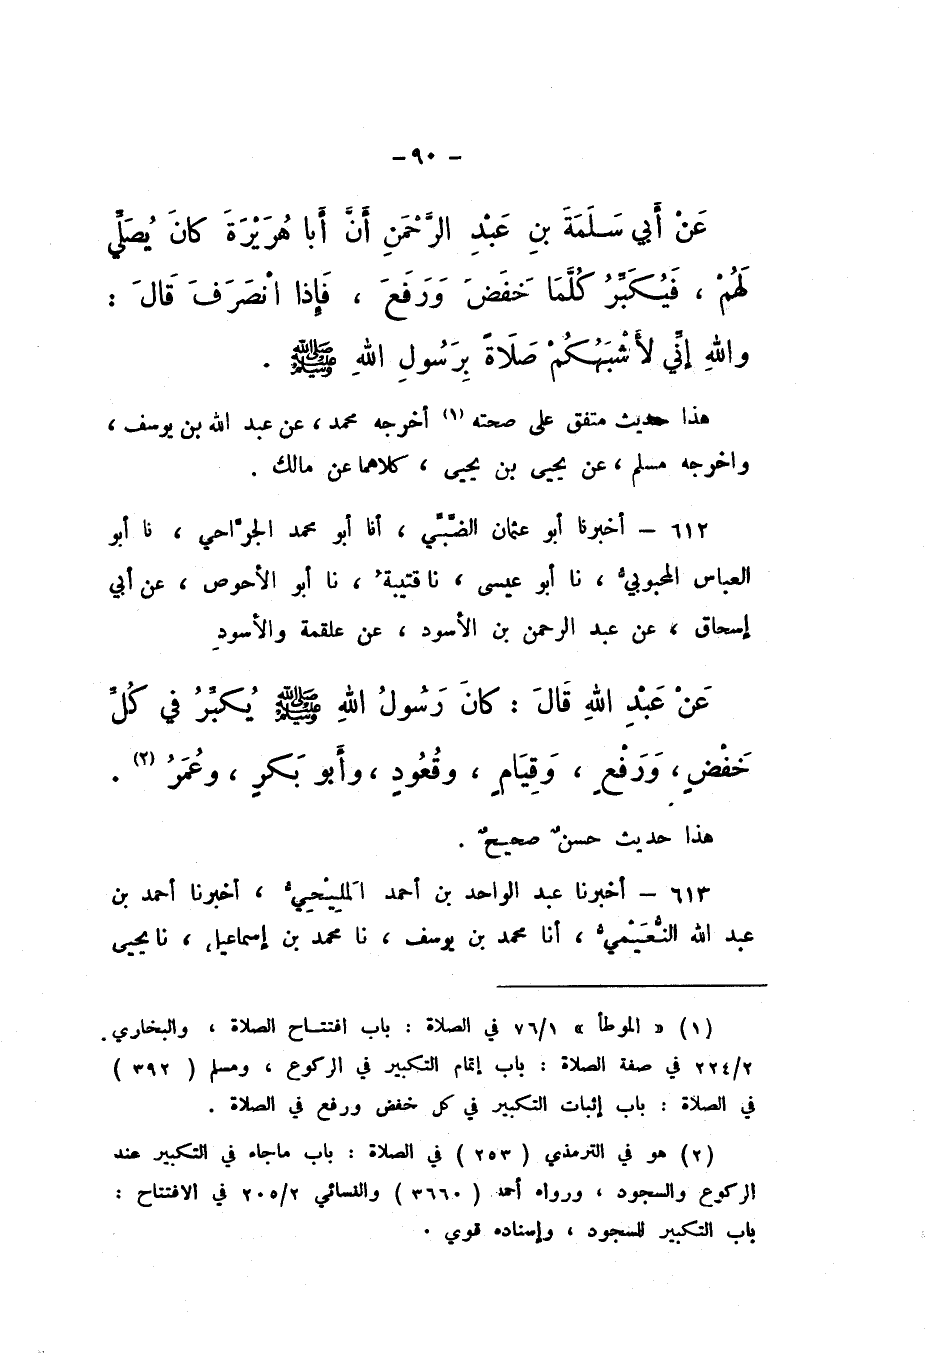 - ٩٠ -
عَنْ أَبي سَلَمَةَ بنِ عَبْدِ الرَّحْمَنِ أَنَّ أَبا هُرَيْرَةَ كانَ يُصَلِّي
لَهُمْ ، فَيُكَبِّرُ كُلَّمَا خَفَضَ وَرَفَعَ ، فَإِذا انْصَرَفَ قَالَ :
واللهِ إنِّي لأَشْبَهُكُمْ صَلَاةً بِرَسُولِ اللهِ ﷺ .
هذا حديث متفق على صحته (١) أخرجه محمد ، عن عبد الله بن يوسف ،
واخرجه مسلم ، عن يحيى بن يحيى ، كلاهما عن مالك .
٦١٢ - أخبرنا أبو عثمان الضّبّي ، أنا أبو محمد الجرّاحي ، نا أبو
العباس المحبوبيُّ ، نا أبو عيسى ، نا قتيبةُ ، نا أبو الأحوص ، عن أبي
إسحاق ، عن عبد الرحمن بن الأسود ، عن علقمة والأسودِ
عَنْ عَبْدِ اللهِ قَالَ : كانَ رَسُولُ اللهِ ﷺ يُكَبِّرُ في كُلِّ
خَفْضٍ ، وَرَفْعٍ ، وَقِيَامٍ ، وقُعُودٍ ، وأَبو بَكرٍ ، وعُمَرُ (٢) .
هذا حديث حسنٌ صحيحٌ .
٦١٣ - أخبرنا عبد الواحد بن أحمد المَلِيْحِيُّ ، أخبرنا أحمد بن
عبد الله النُّعَيْمِيُّ ، أنا محمد بن يوسف ، نا محمد بن إسماعيل ، نا يحيى
(١) « الموطأ » ٧٦/١ في الصلاة : باب افتتاح الصلاة ، والبخاري .
٢٢٤/٢ في صفة الصلاة : باب إتمام التكبير في الركوع ، ومسلم ( ٣٩٢ )
في الصلاة : باب إثبات التكبير في كل خفض ورفع في الصلاة .
(٢) هو في الترمذي ( ٢٥٣ ) في الصلاة : باب ماجاء في التكبير عند
الركوع والسجود ، ورواه أحمد ( ٣٦٦٠ ) والنسائي ٢٠٥/٢ في الافتتاح :
باب التكبير للسجود ، وإسناده قوي .